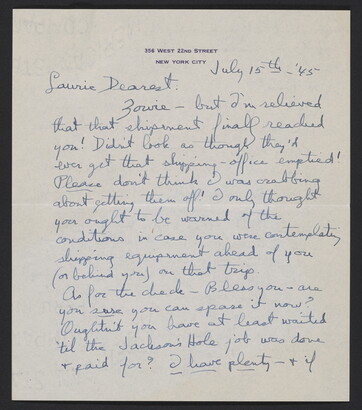 356 WEST 22ND STREET
NEW YORK CITY
July 15th - '45
Laurie Dearest:
Zowie - but I'm relieved
that that shipment finall reached
you! Didn't look as though they'd
ever get that shipping-office emptied!
Please don't think I was crabbing
about getting them off! I only thought
you ought to be warned of the
conditions in case you were contemplating
shipping equipment ahead of you
(or behind you) on that trip.
As for the check - Bless you - are
you sure you can spare it now?
Oughtn't you have at least waited
'til the Jackson's Hole job was done
+ paid for? I have plenty - + if